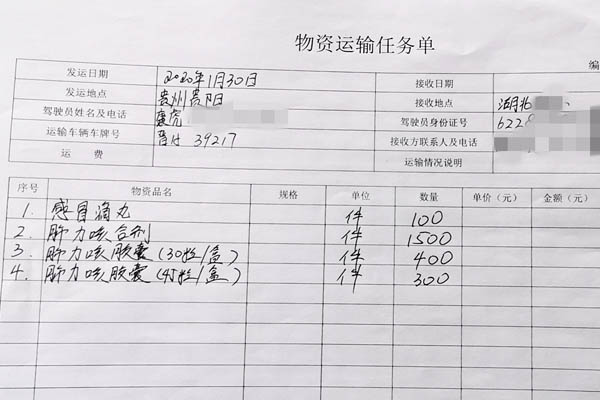 物资运输任务单
编
发运日期 2020年1月30日 接收日期
发运地点 贵州贵阳 接收地点 湖北
驾驶员姓名及电话 康虎 驾驶员身份证号 6228
运输车辆车牌号 39217 接收方联系人及电话
运费 运输情况说明
序号 物资品名 规格 单位 数量 单价（元） 金额（元）
1. 感冒滴丸 件 100
2. 肺力咳合剂 件 1500
3. 肺力咳胶囊（30粒/盒） 件 400
4. 肺力咳胶囊（45粒/盒） 件 300